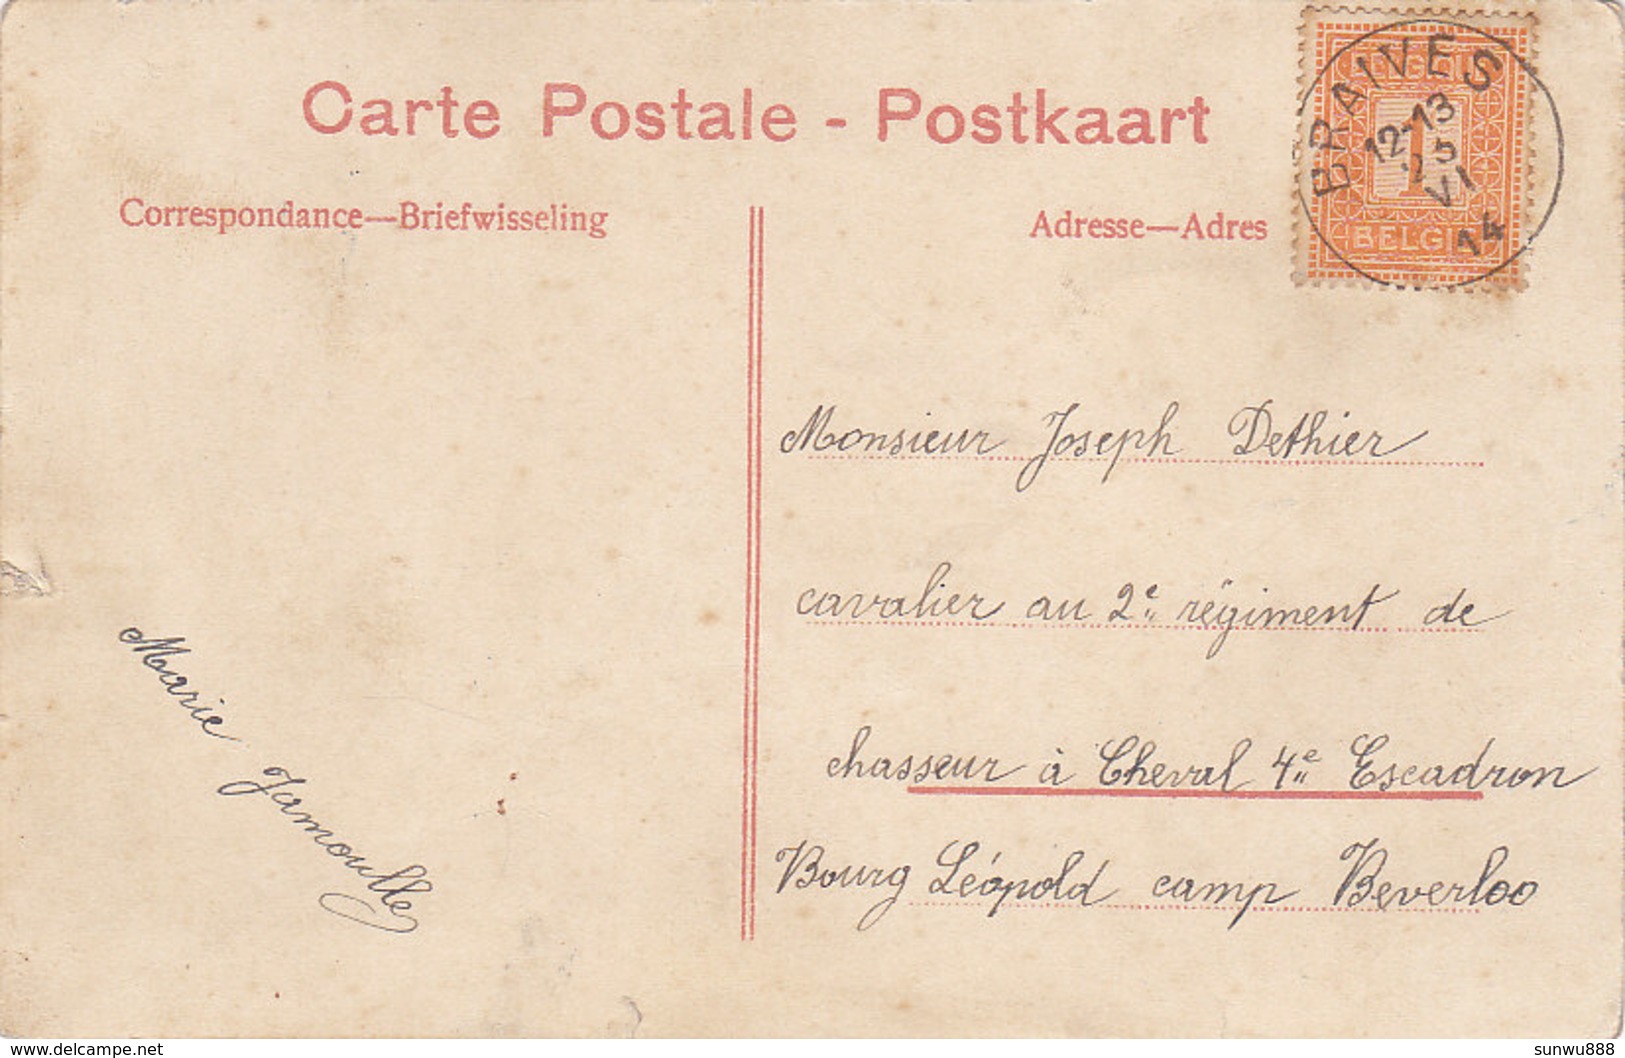 Carte Postale - Postkaart
Correspondance—Briefwisseling
Adresse—Adres
BRAIVES
12-13
25
VI
14
1
BELG
Monsieur Joseph Dethier
cavalier au 2e régiment de
chasseur à Cheval 4e Escadron
Bourg Léopold camp Beverloo
Marie Jamoulle
www.delcampe.net
sunwu888